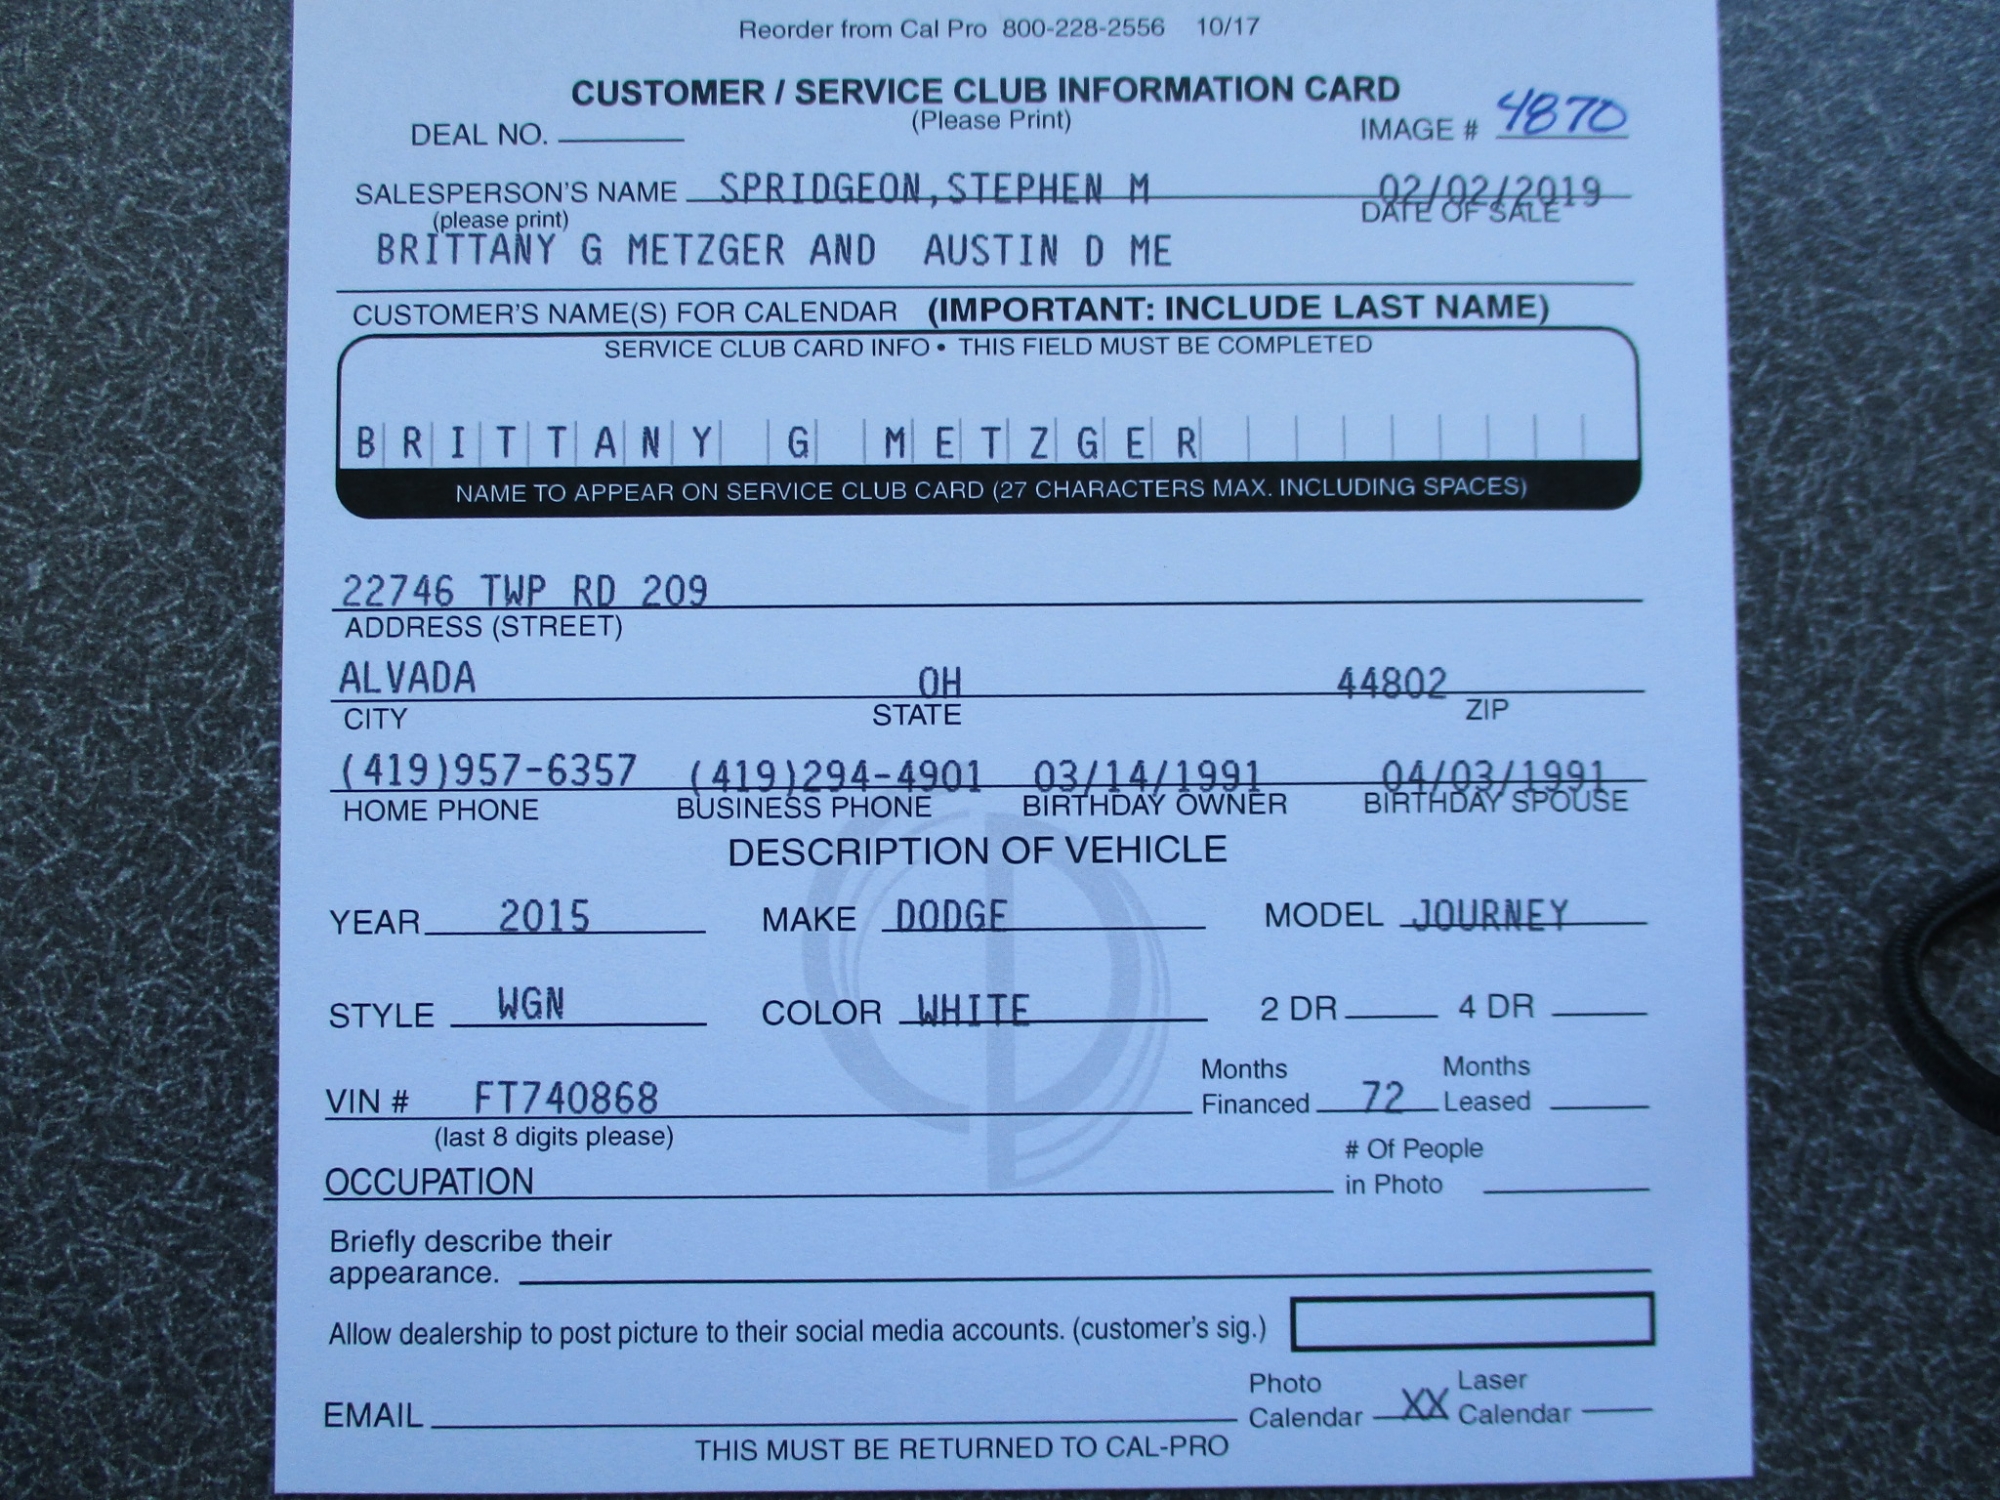 Reorder from Cal Pro 800-228-2556 10/17
CUSTOMER / SERVICE CLUB INFORMATION CARD
(Please Print)
DEAL NO. IMAGE # 4870
SALESPERSON'S NAME SPRIDGEON,STEPHEN M 02/02/2019
(please print) DATE OF SALE
BRITTANY G METZGER AND AUSTIN D ME
CUSTOMER'S NAME(S) FOR CALENDAR (IMPORTANT: INCLUDE LAST NAME)
SERVICE CLUB CARD INFO • THIS FIELD MUST BE COMPLETED
BRITTANY G METZGER
NAME TO APPEAR ON SERVICE CLUB CARD (27 CHARACTERS MAX. INCLUDING SPACES)
22746 TWP RD 209
ADDRESS (STREET)
ALVADA OH 44802
CITY STATE ZIP
(419)957-6357 (419)294-4901 03/14/1991 04/03/1991
HOME PHONE BUSINESS PHONE BIRTHDAY OWNER BIRTHDAY SPOUSE
DESCRIPTION OF VEHICLE
YEAR 2015 MAKE DODGE MODEL JOURNEY
STYLE WGN COLOR WHITE 2 DR 4 DR
Months Months
VIN # FT740868 Financed 72 Leased
(last 8 digits please) # Of People
OCCUPATION in Photo
Briefly describe their
appearance.
Allow dealership to post picture to their social media accounts. (customer's sig.)
Photo Laser
EMAIL Calendar XX Calendar
THIS MUST BE RETURNED TO CAL-PRO